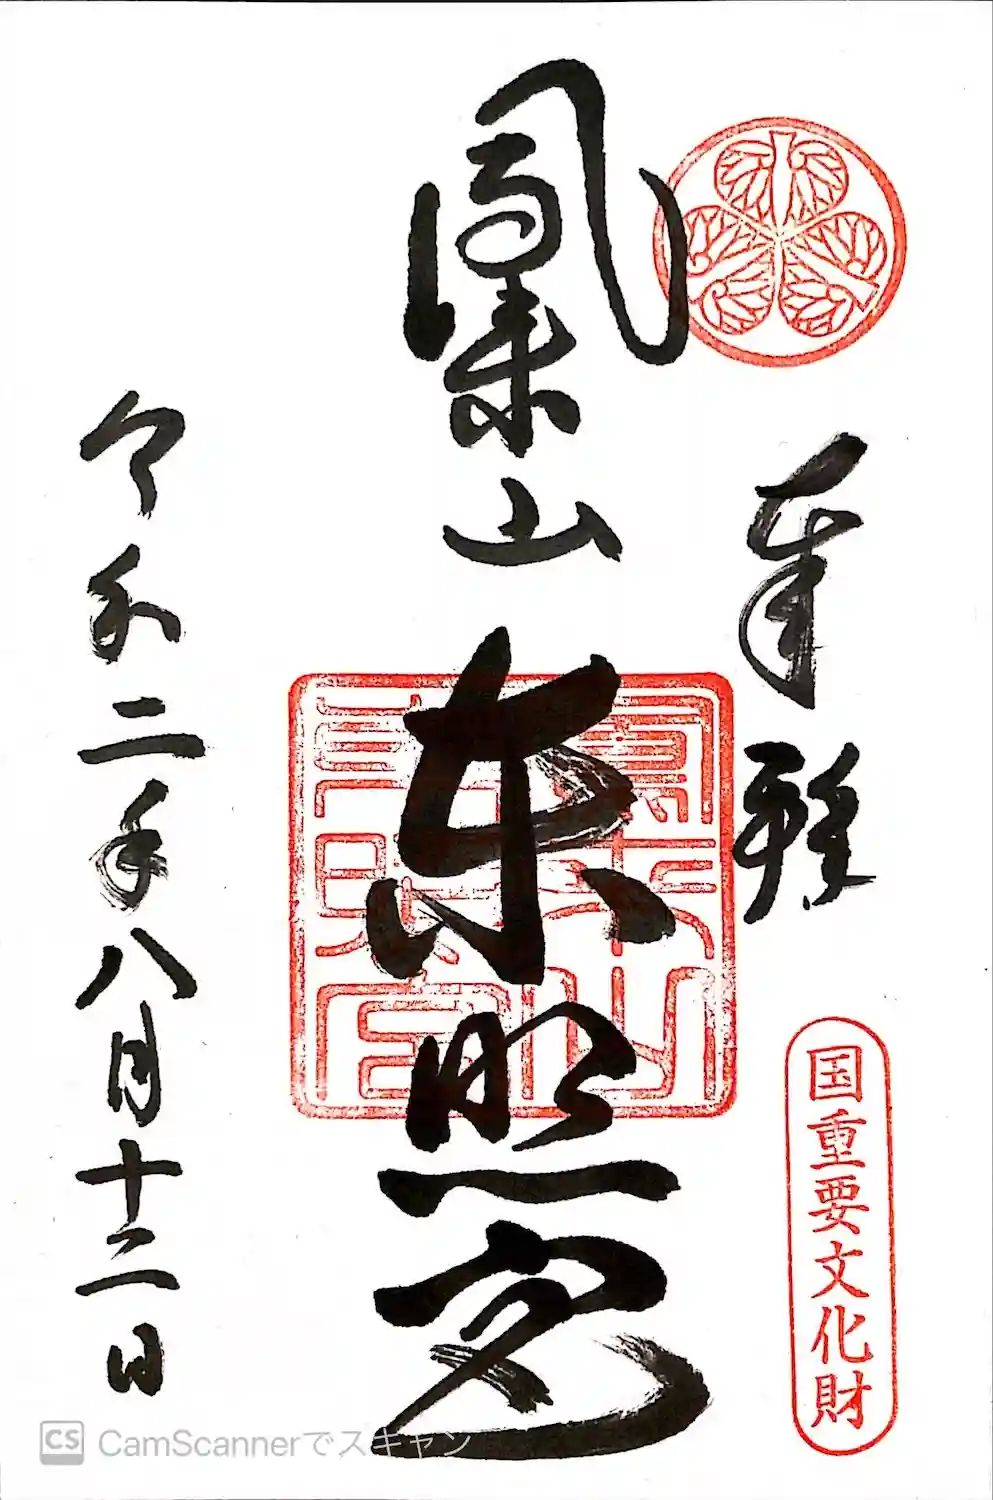 奉拝
国重要文化財
鳳来山
東照宮
令和二年八月十二日
CamScannerでスキャン